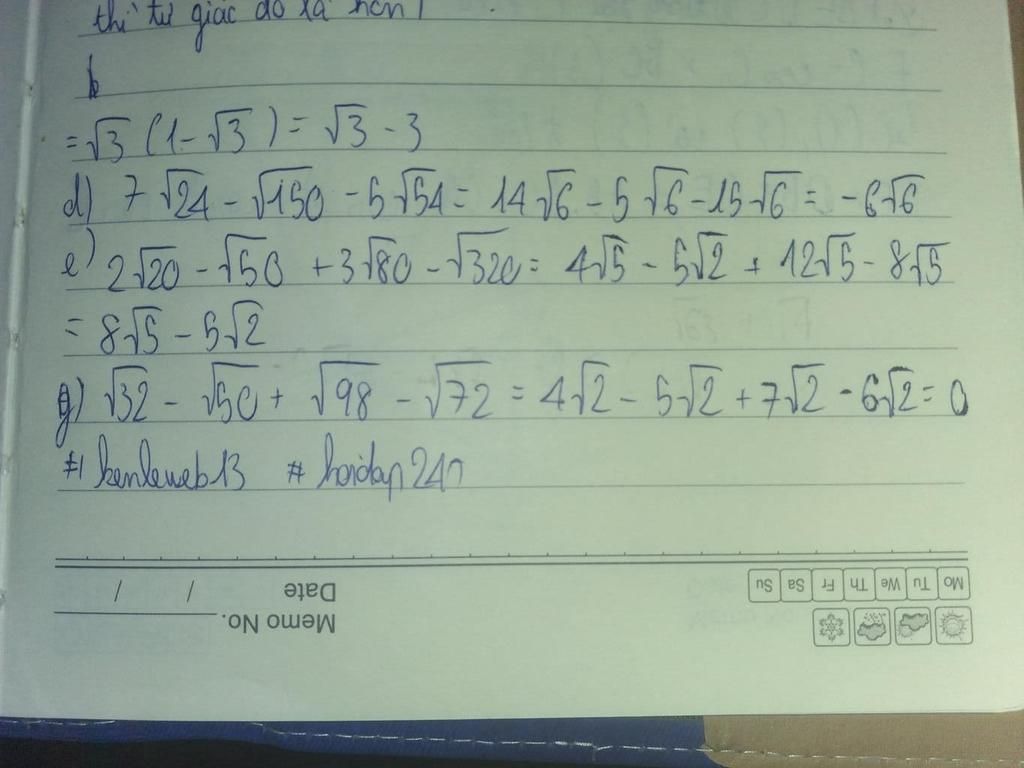 thì tứ giác đó là hcn
b
= √3 (1 - √3) = √3 - 3
d) 7√24 - √150 - 5√54 = 14√6 - 5√6 - 15√6 = -6√6
e) 2√20 - √50 + 3√80 - √320 = 4√5 - 5√2 + 12√5 - 8√5
= 8√5 - 5√2
g) √32 - √50 + √98 - √72 = 4√2 - 5√2 + 7√2 - 6√2 = 0
#kenleweb13 #hoidap247
Mo Tu We Th Fr Sa Su
Memo No.
Date / /